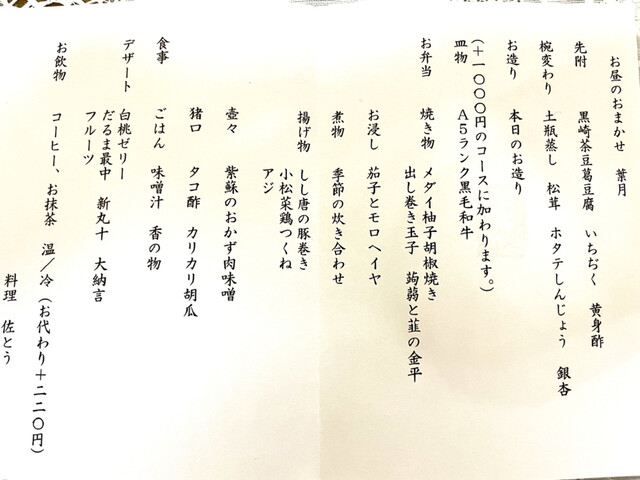 お昼のおまかせ 葉月
先附 黒崎茶豆葛豆腐 いちぢく 黄身酢
椀変わり 土瓶蒸し 松茸 ホタテしんじょう 銀杏
お造り 本日のお造り
(+一〇〇〇円のコースに加わります。)
皿物 A5ランク黒毛和牛
お弁当 焼き物 メダイ柚子胡椒焼き
出し巻き玉子 蒟蒻と韮の金平
お浸し 茄子とモロヘイヤ
煮物 季節の炊き合わせ
揚げ物 しし唐の豚巻き
小松菜鶏つくね
アジ
壺々 紫蘇のおかず肉味噌
猪口 タコ酢 カリカリ胡瓜
食事 ごはん 味噌汁 香の物
デザート 白桃ゼリー
だるま最中 新丸十 大納言
フルーツ
お飲物 コーヒー、お抹茶 温/冷 (お代わり+二二〇円)
料理 佐とう